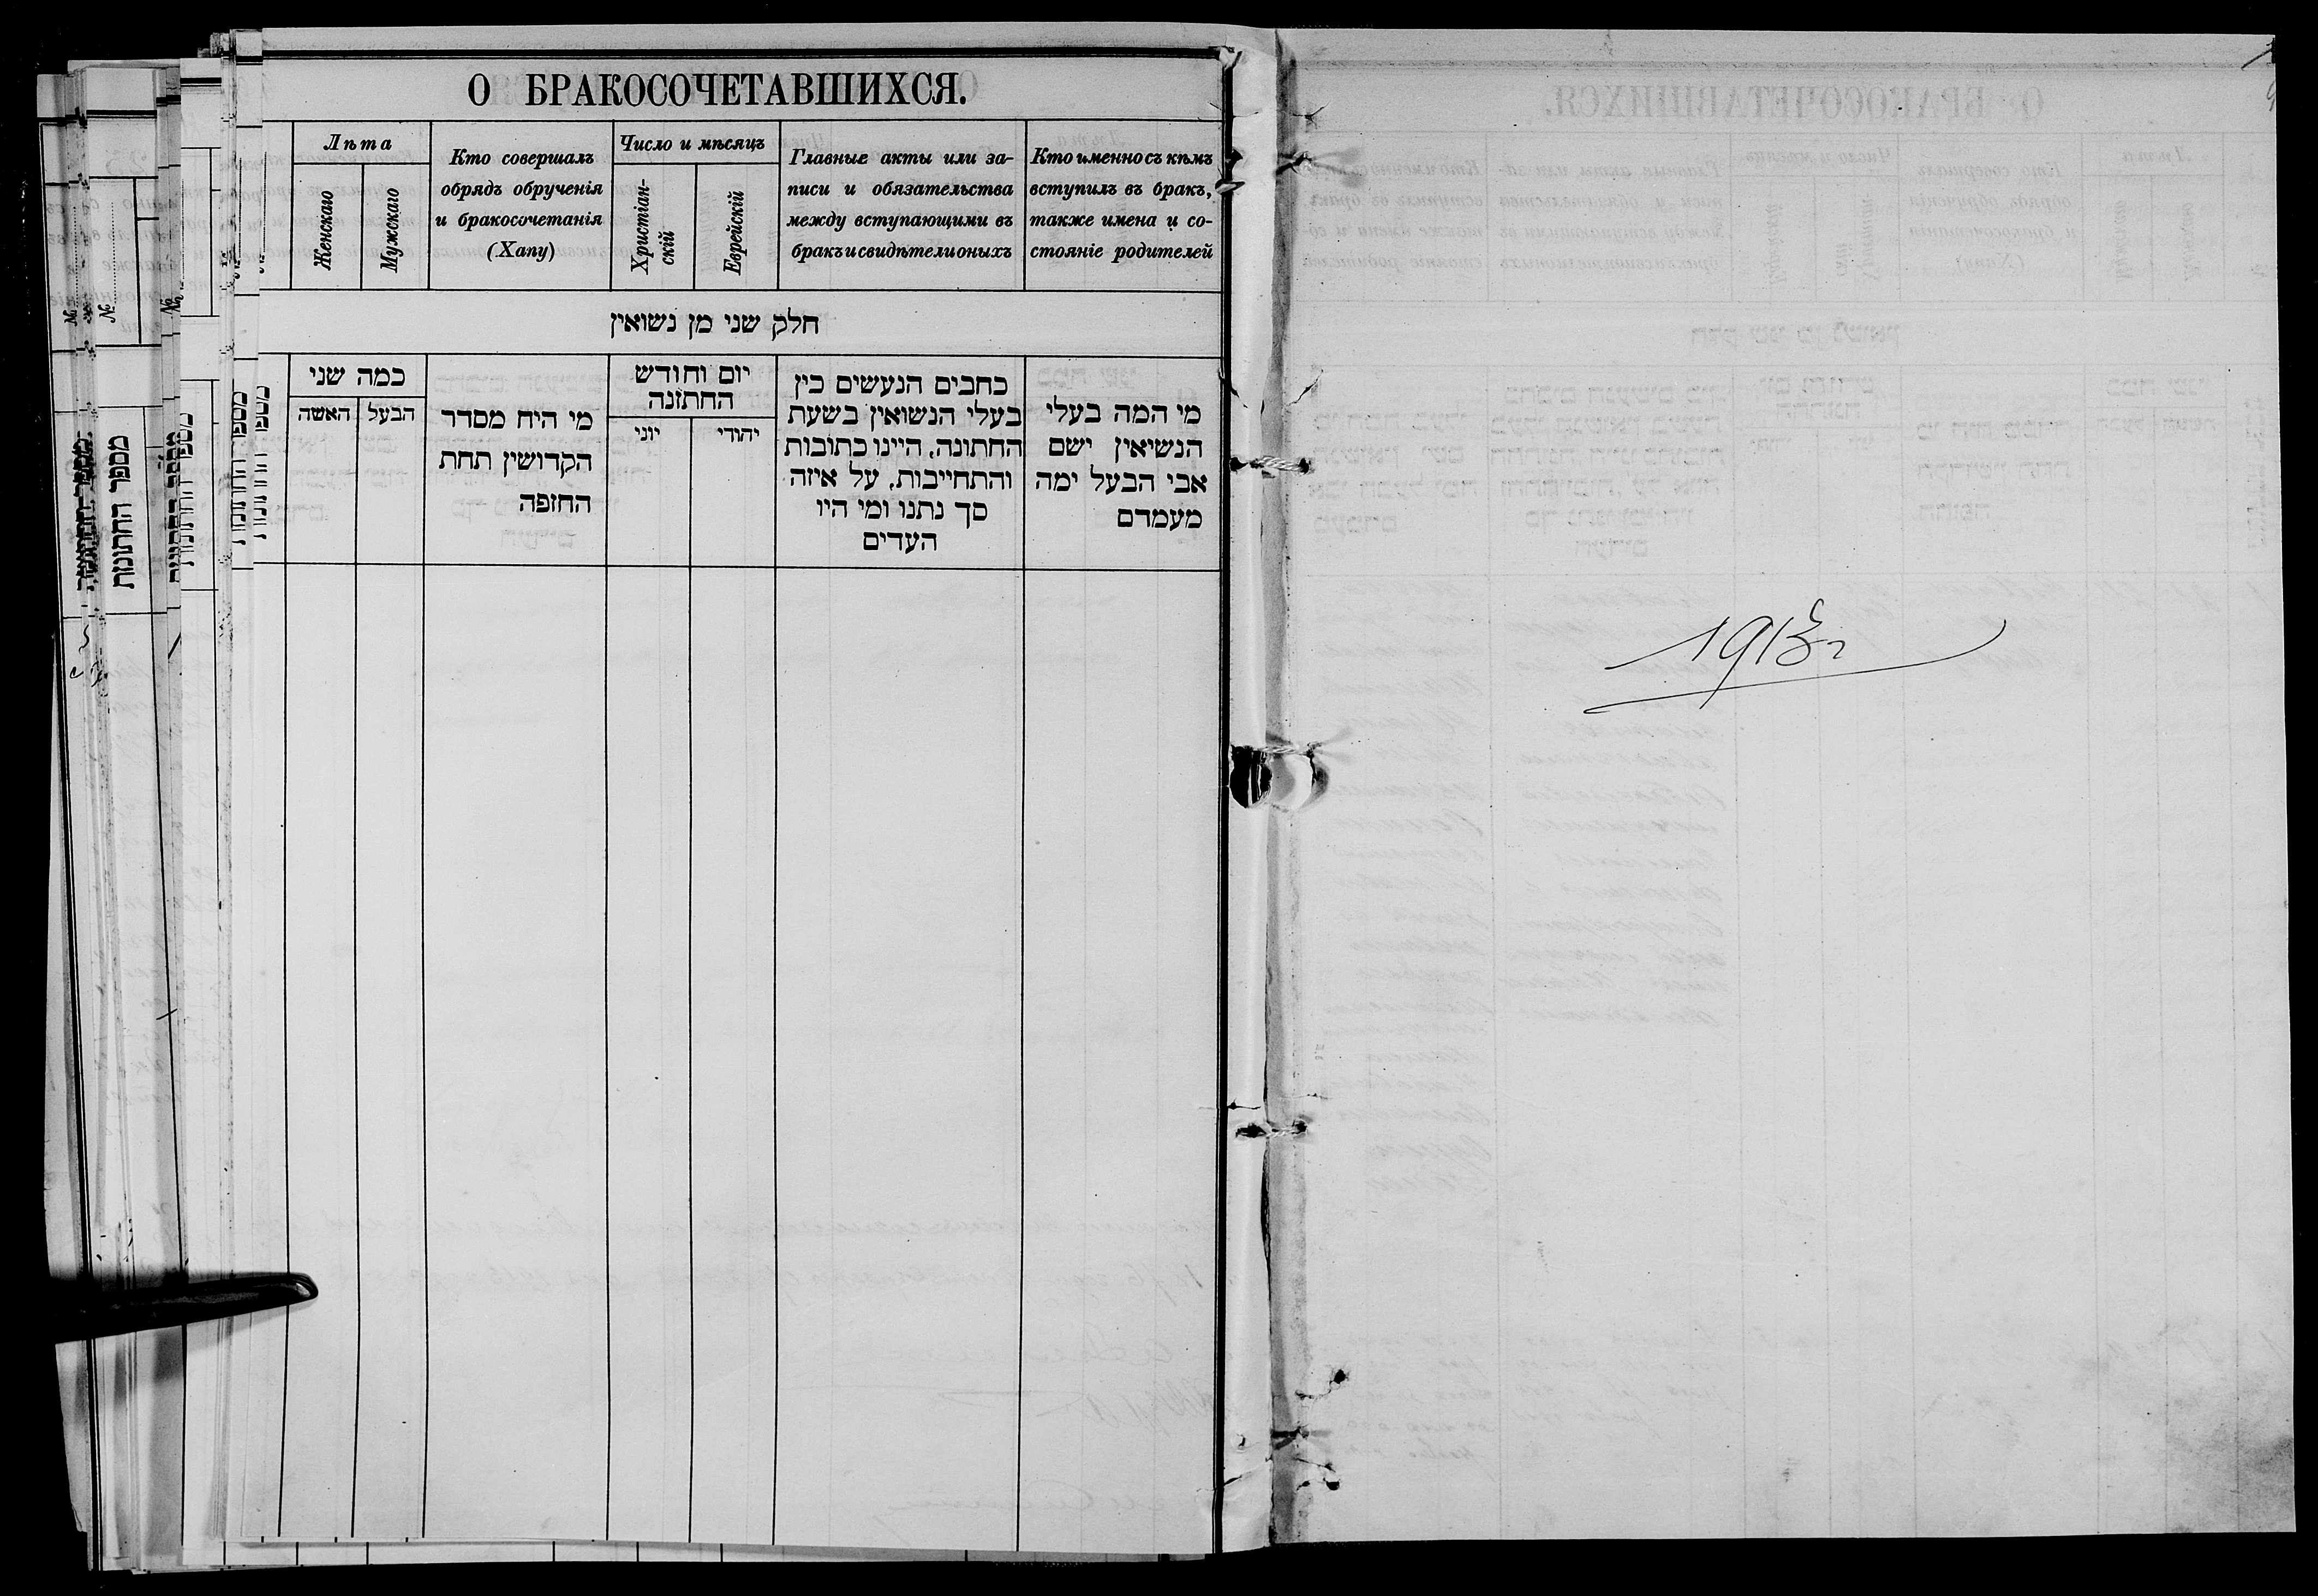 О БРАКОСОЧЕТАВШИХСЯ.
Лѣта
Женскаго
Мужскаго
Кто совершалъ
обрядъ обрученія
и бракосочетанія
(Хапу)
Число и мѣсяцъ
Христіан-
скій
Еврейскій
Главные акты или за-
писи и обязательства
между вступающими въ
бракъ и свидѣтели оныхъ
Кто именно съ кѣмъ
вступилъ въ бракъ,
также имена и со-
стояніе родителей
חלק שני מן נשואין
כמה שני
הבעל
האשה
מי היה מסדר
הקדושין תחת
החופה
יום וחודש
החתונה
יהודי
יוני
כתבים הנעשים בין
בעלי הנשואין בשעת
החתונה, היינו כתובות
והתחייבות, על איזה
סך נתנו ומי היו
העדים
מי המה בעלי
הנשיאין ישם
אבי הבעל ימה
מעמדם
№
מספר החתונות
1913 г